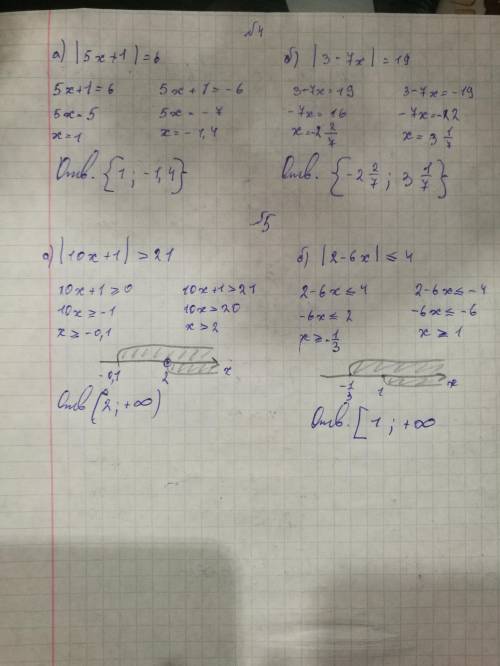 №4
а) |5x+1|=6
5x+1=6   5x+1=-6
5x=5   5x=-7
x=1   x=-1,4
Отв. {1; -1,4}
б) |3-7x|=19
3-7x=19   3-7x=-19
-7x=16   -7x=-22
x=-2 2/7   x=3 1/7
Отв. {-2 2/7; 3 1/7}
№5
а) |10x+1|>21
10x+1≥0   10x+1>21
10x≥-1   10x>20
x≥-0,1   x>2
-0,1   2   x
Отв (2; +∞)
б) |2-6x|≤4
2-6x≤4   2-6x≤-4
-6x≤2   -6x≤-6
x≥-1/3   x≥1
-1/3   1   x
Отв. [1; +∞